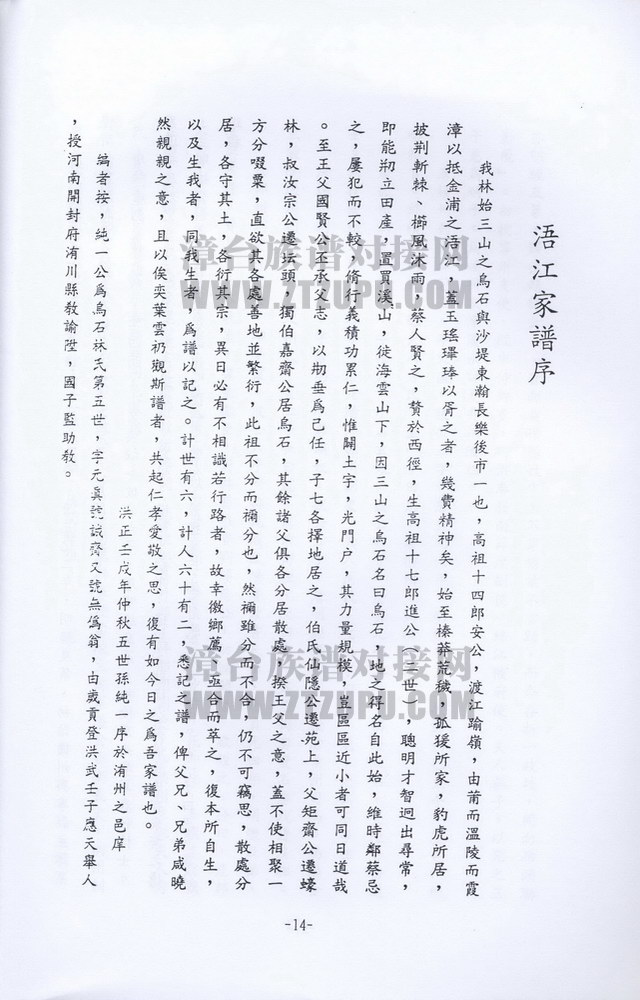 浯江家譜序
我林始三山之烏石與沙堤東瀚長樂後市一也，高祖十四郎安公，渡江踰嶺，由莆而溫陵而霞
漳以抵金浦之浯江，蓋玉瑤瓊瑧以胥之者，幾費精神矣，始至榛莽荒穢，孤猨所家，豹虎所居，
披荆斬棘、櫛風沐雨，蔡人賢之，贅於西徑，生高祖十七郎進公（二世），聰明才智迥出尋常，
即能剏立田產，置買溪山，徙海雲山下，因三山之烏石名曰烏石，地之得名自此始，維時鄰蔡忌
之，屢犯而不較，脩行義積功累仁，惟闢土宇，光門户，其力量規模，豈區區近小者可同日道哉
。至王父國賢公丕承父志，以剏垂爲己任，子七各擇地居之，伯氏仙隱公遷苑上，父矩齋公遷蠔
林，叔汝宗公遷坛頭，獨伯嘉齋公居烏石，其餘諸父俱各分居散處，揆王父之意，蓋不使相聚一
方分啜粟，直欲其各處善地並繁衍，此祖不分而禰分也，然禰雖分而不合，仍不可竊思，散處分
居，各守其土，各衍其宗，異日必有不相識若行路者，故幸徽鄉薦，亟合而萃之，復本所自生，
以及生我者，同我生者，爲譜以記之。計世有六，計人六十有二，悉記之譜，俾父兄、兄弟咸曉
然親親之意，且以俟奕葉雲礽觀斯譜者，共起仁孝愛敬之思，復有如今日之爲吾家譜也。
洪正壬戌年仲秋五世孫純一序於洧州之邑庠
編者按，純一公爲烏石林氏第五世，字元真號誠齋又號無僞翁，由歲貢登洪武壬子應天舉人
，授河南開封府洧川縣教諭陞，國子監助敎。
-14-
漳台族谱对接网
WWW.ZTZUPU.COM
漳台族谱对接网
WWW.ZTZUPU.COM